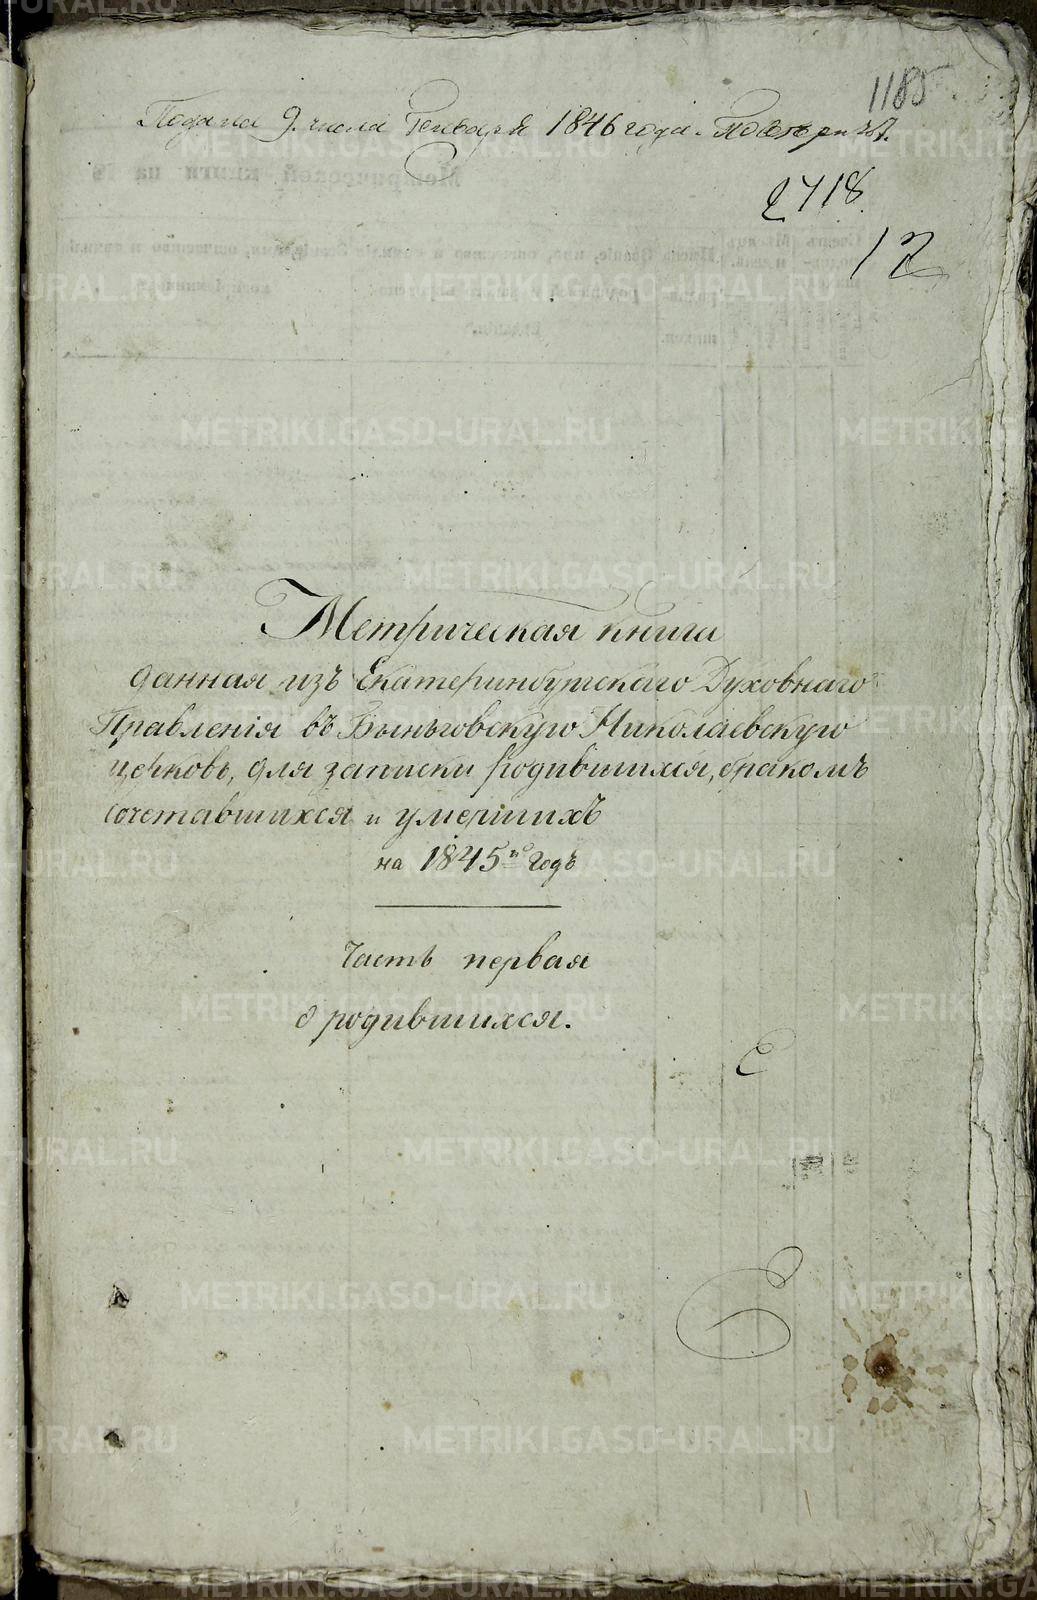 1185
Подана 9. числа Генваря 1846 года.
2718
12
Метрическая книга
данная изъ Екатеринбургскаго Духовнаго
Правленія въ Быньговскую Николаевскую
церковь, для записки родившихся, бракомъ
сочетавшихся и умершихъ
на 1845й годъ
Часть первая
о родившихся.
METRIKI.GASO-URAL.RU